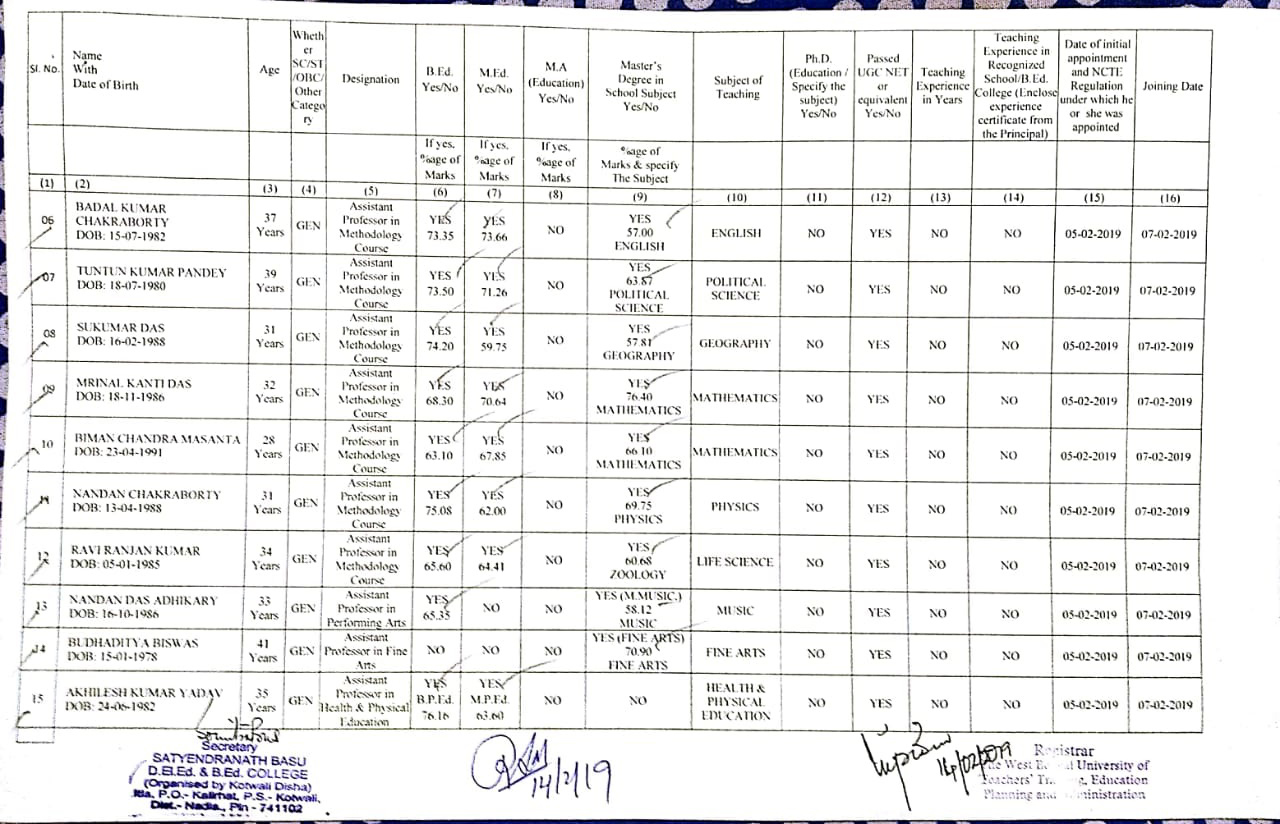 Sl. No.
Name
With
Date of Birth
Age
Wheth
er
SC/ST
/OBC/
Other
Catego
ry
Designation
B.Ed.
Yes/No
M.Ed.
Yes/No
M.A
(Education)
Yes/No
Master's
Degree in
School Subject
Yes/No
Subject of
Teaching
Ph.D.
(Education /
Specify the
subject)
Yes/No
Passed
UGC NET
or
equivalent
Yes/No
Teaching
Experience
in Years
Teaching
Experience in
Recognized
School/B.Ed.
College (Enclose
experience
certificate from
the Principal)
Date of initial
appointment
and NCTE
Regulation
under which he
or she was
appointed
Joining Date
If yes,
%age of
Marks
If yes,
%age of
Marks
If yes,
%age of
Marks
%age of
Marks & specify
The Subject
(1) (2) (3) (4) (5) (6) (7) (8) (9) (10) (11) (12) (13) (14) (15) (16)
06
BADAL KUMAR
CHAKRABORTY
DOB: 15-07-1982
37
Years
GEN
Assistant
Professor in
Methodology
Course
YES
73.35
YES
73.66
NO
YES
57.00
ENGLISH
ENGLISH
NO
YES
NO
NO
05-02-2019
07-02-2019
07
TUNTUN KUMAR PANDEY
DOB: 18-07-1980
39
Years
GEN
Assistant
Professor in
Methodology
Course
YES
73.50
YES
71.26
NO
YES
63.87
POLITICAL
SCIENCE
POLITICAL
SCIENCE
NO
YES
NO
NO
05-02-2019
07-02-2019
08
SUKUMAR DAS
DOB: 16-02-1988
31
Years
GEN
Assistant
Professor in
Methodology
Course
YES
74.20
YES
59.75
NO
YES
57.81
GEOGRAPHY
GEOGRAPHY
NO
YES
NO
NO
05-02-2019
07-02-2019
09
MRINAL KANTI DAS
DOB: 18-11-1986
32
Years
GEN
Assistant
Professor in
Methodology
Course
YES
68.30
YES
70.64
NO
YES
76.40
MATHEMATICS
MATHEMATICS
NO
YES
NO
NO
05-02-2019
07-02-2019
10
BIMAN CHANDRA MASANTA
DOB: 23-04-1991
28
Years
GEN
Assistant
Professor in
Methodology
Course
YES
63.10
YES
67.85
NO
YES
66.10
MATHEMATICS
MATHEMATICS
NO
YES
NO
NO
05-02-2019
07-02-2019
NANDAN CHAKRABORTY
DOB: 13-04-1988
31
Years
GEN
Assistant
Professor in
Methodology
Course
YES
75.08
YES
62.00
NO
YES
69.75
PHYSICS
PHYSICS
NO
YES
NO
NO
05-02-2019
07-02-2019
12
RAVI RANJAN KUMAR
DOB: 05-01-1985
34
Years
GEN
Assistant
Professor in
Methodology
Course
YES
65.60
YES
64.41
NO
YES
60.68
ZOOLOGY
LIFE SCIENCE
NO
YES
NO
NO
05-02-2019
07-02-2019
13
NANDAN DAS ADHIKARY
DOB: 16-10-1986
33
Years
GEN
Assistant
Professor in
Performing Arts
YES
65.35
NO
NO
YES (M.MUSIC.)
58.12
MUSIC
MUSIC
NO
YES
NO
NO
05-02-2019
07-02-2019
14
BUDHADITYA BISWAS
DOB: 15-01-1978
41
Years
GEN
Assistant
Professor in Fine
Arts
NO
NO
NO
YES (FINE ARTS)
70.90
FINE ARTS
FINE ARTS
NO
YES
NO
NO
05-02-2019
07-02-2019
15
AKHILESH KUMAR YADAV
DOB: 24-06-1982
35
Years
GEN
Assistant
Professor in
Health & Physical
Education
YES
B.P.Ed.
76.16
YES
M.P.Ed.
63.60
NO
NO
HEALTH &
PHYSICAL
EDUCATION
NO
YES
NO
NO
05-02-2019
07-02-2019
Secretary
SATYENDRANATH BASU
D.El.Ed. & B.Ed. COLLEGE
(Organised by Kotwali Disha)
P.O.- Kalirhat, P.S.- Kotwali,
Dist.- Nadia, Pin - 741102
14/2/19
14/02/2019
Registrar
West University of
Teachers' Education
Planning and